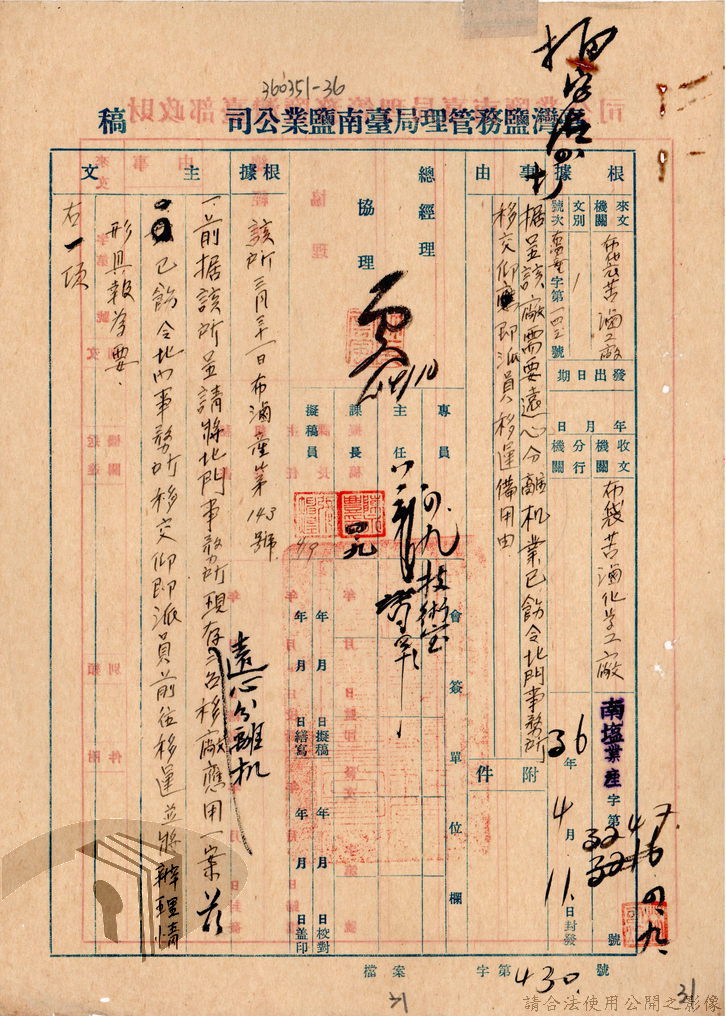 360351-36
臺灣鹽務管理局臺南鹽業公司 稿
根據
來文機關 布袋苦滷工廠
文別
號次 字第一四三號
發出日期 年 月 日
收文機關 布袋苦滷化學工廠
分行機關
南塩業產 字第 號
36年4月11日封發
事由
据呈該廠需要遠心分離机業已飭令北門事務所
移交仰即派員移運備用由
附件
總經理
協理
專員
主任
課長
擬稿員
四九技術室
會簽單位欄
年 月 日擬稿
年 月 日繕寫
年 月 日校對
年 月 日蓋印
根據
該所三月三十一日布滷產第143號
主文
一、前据該所呈請將北門事務所現存三台移廠應用一案茲
遠心分離机
已飭令北門事務所移交仰即派員前往移運並將辦理情
形具報為要.
右一項
檔案 字第430號
31
請合法使用公開之影像